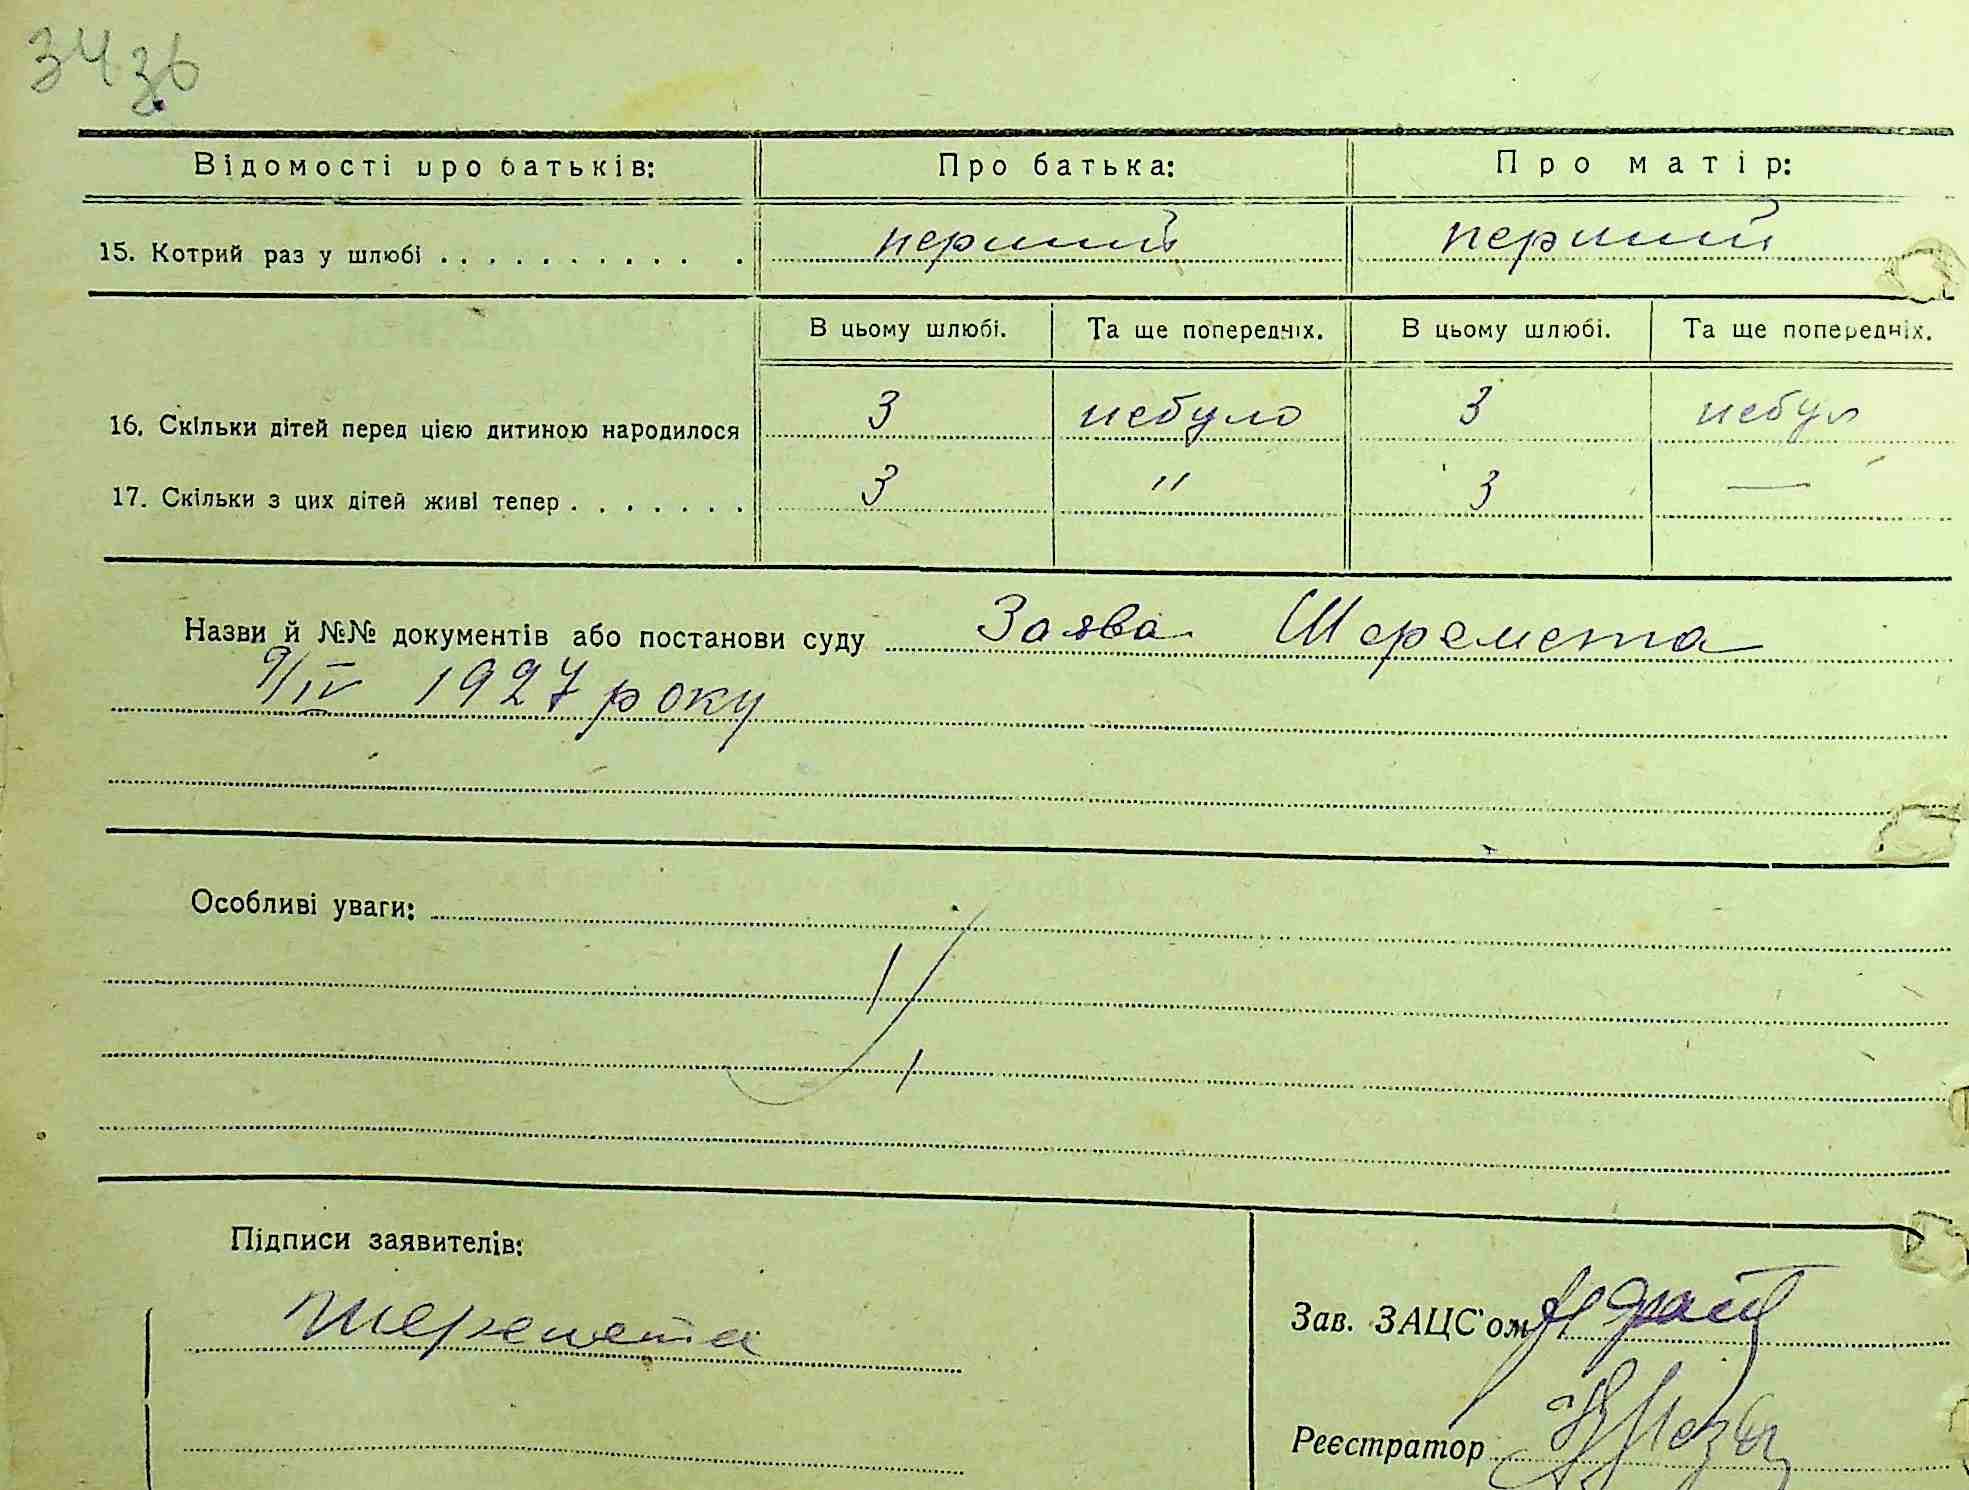 34 36
Відомості про батьків: Про батька: Про матір:
15. Котрий раз у шлюбі . . . . . . . . . . . перший перший
В цьому шлюбі. Та ще попередніх. В цьому шлюбі. Та ще попередніх.
16. Скільки дітей перед цією дитиною народилося 3 небуло 3 небул
17. Скільки з цих дітей живі тепер . . . . . . . 3 " 3 —
Назви й №№ документів або постанови суду Заява Шеремета
9/IV 1927 року
Особливі уваги:
Підписи заявителів:
Шеремета
Зав. ЗАЦС'ом
Реєстратор